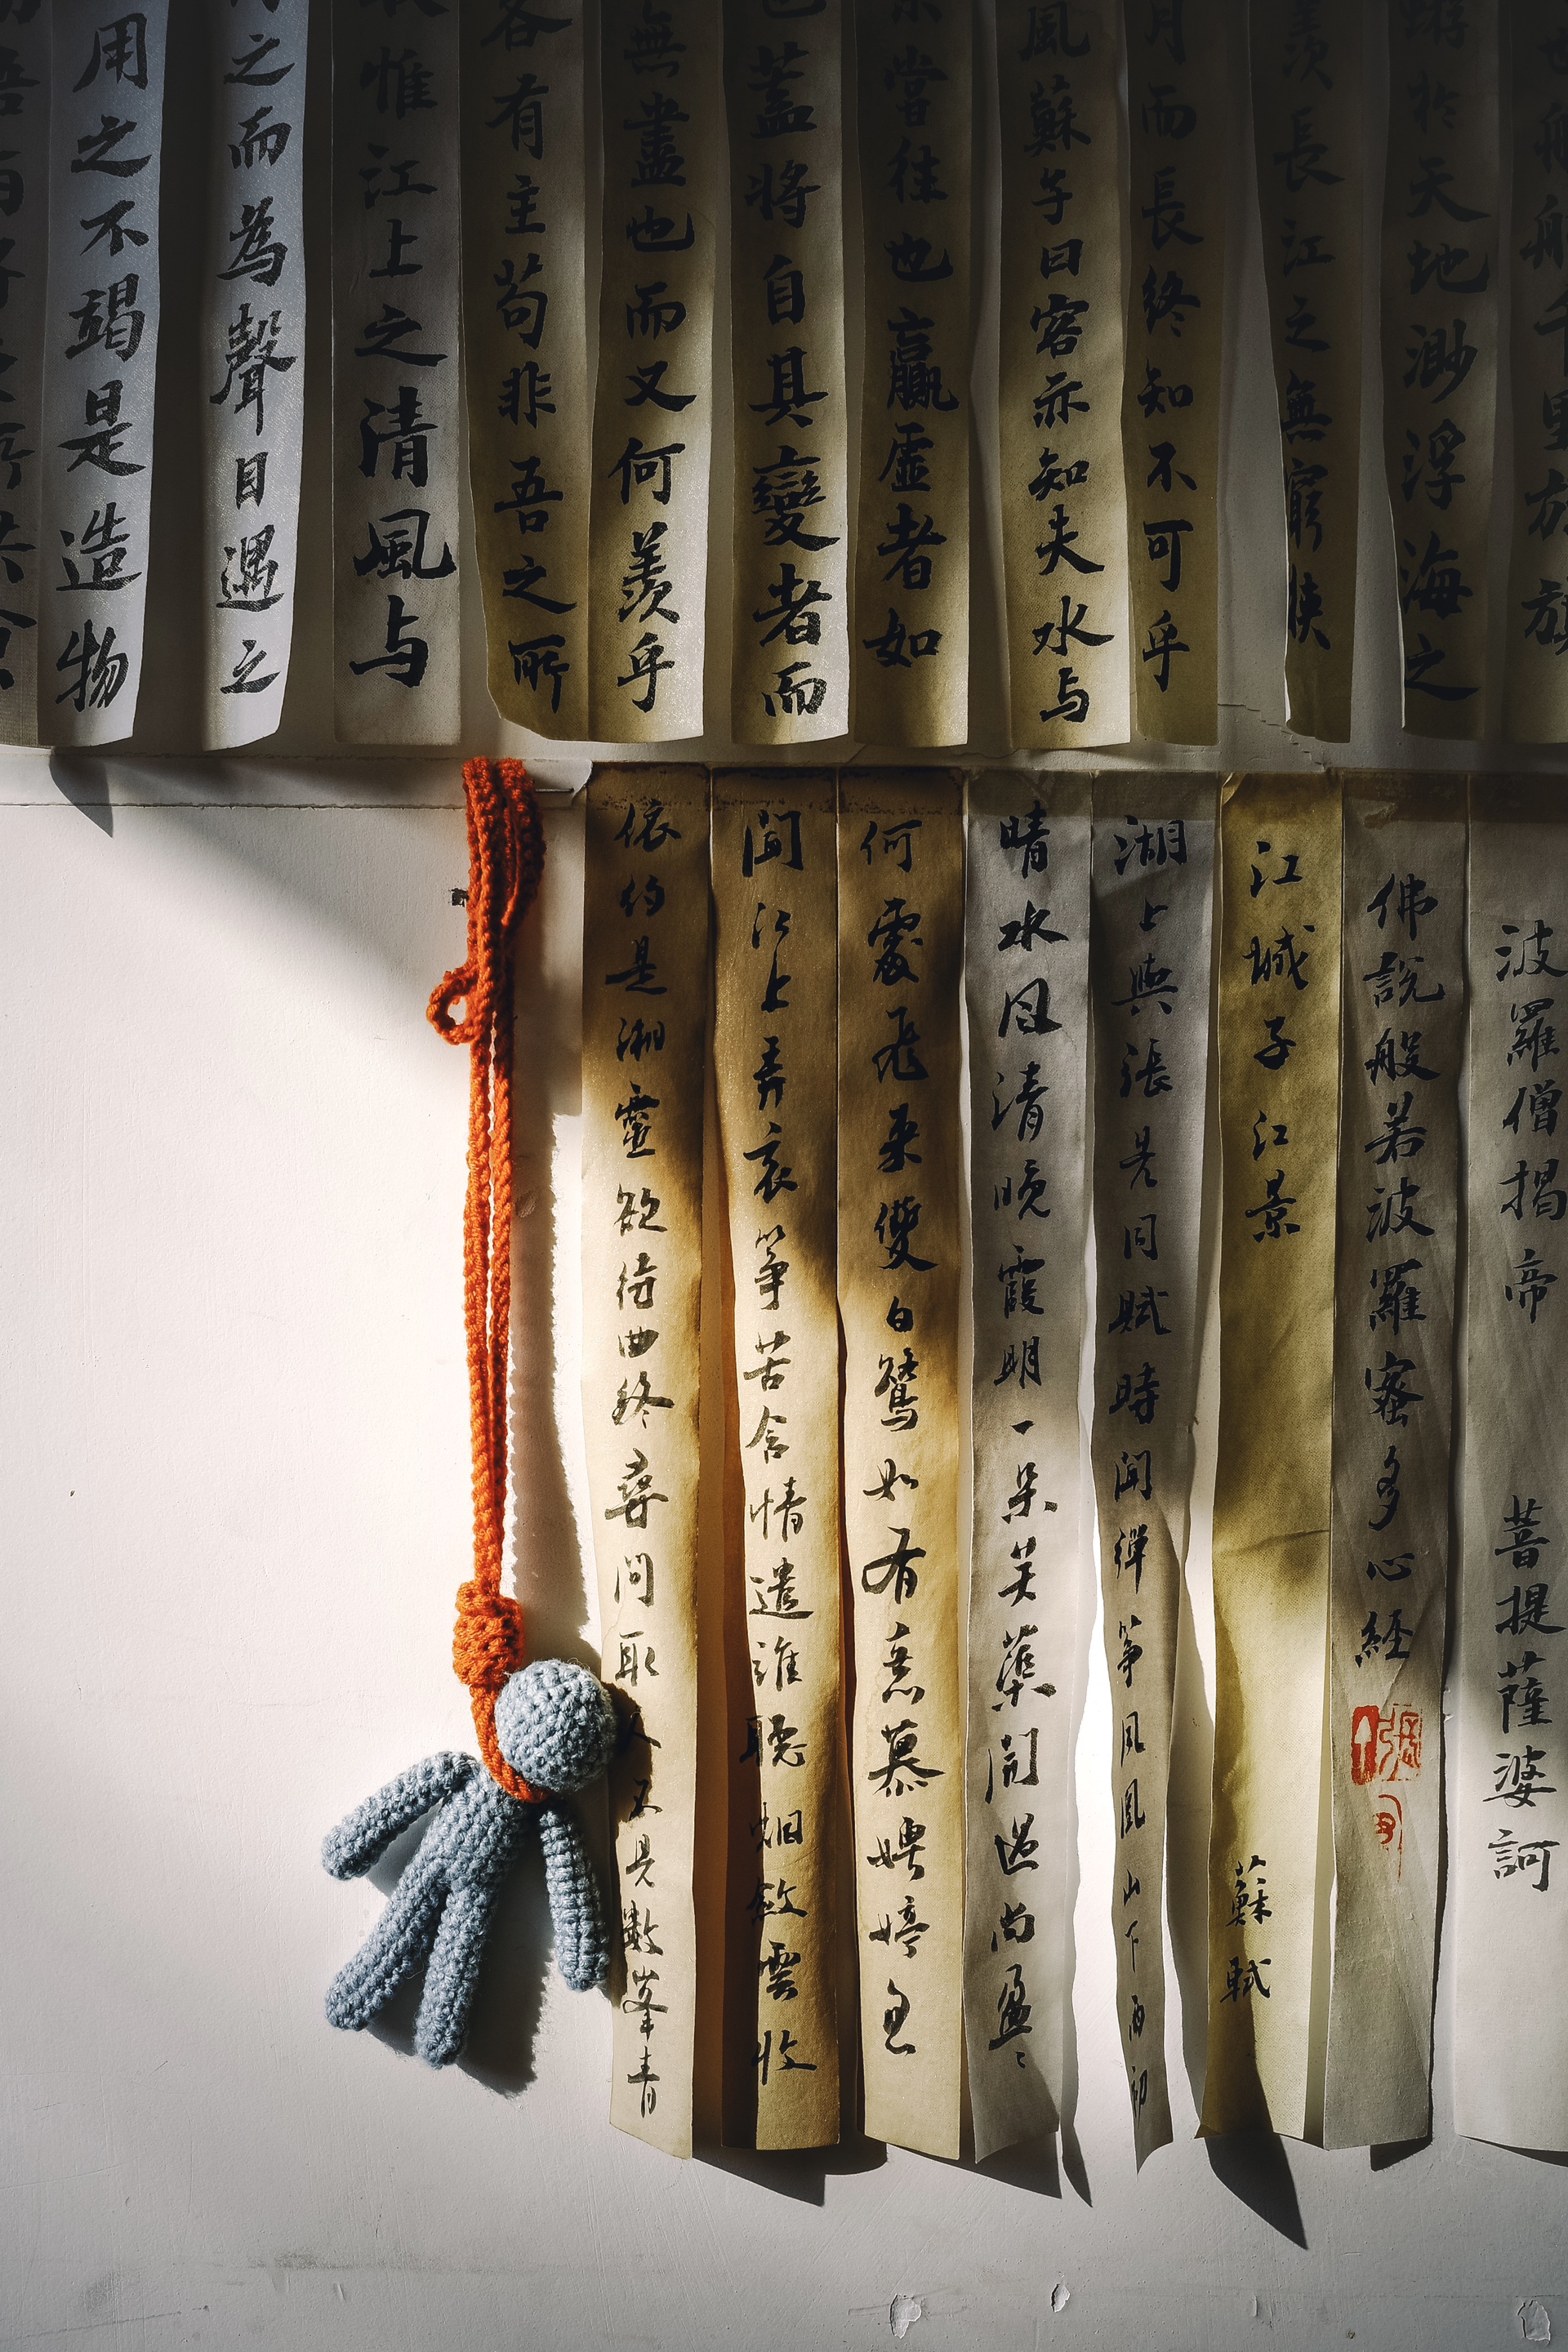 也舳艫千里旌旗
蝣於天地渺浮海之
羨長江之無窮挾
月而長終知不可乎
風蘇子曰客亦知夫水与
嘗往也贏虛者如
也蓋將自其變者而
無盡也而又何羨乎
各有主苟非吾之所
惟江上之清風与
之而為聲目遇之
用之不竭是造物
所共食
波羅僧揭帝 菩提薩婆訶
佛說般若波羅蜜多心經
江城子江景 蘇軾
湖上與張先同賦時聞彈箏鳳凰山下雨初
晴水風清晚霞明一朵芙蕖開過尚盈〻
何處飛來雙白鷺如有意慕娉婷忽
聞江上弄哀箏苦含情遣誰聽烟斂雲收
依約是湘靈欲待曲終尋問取人不見數峯青